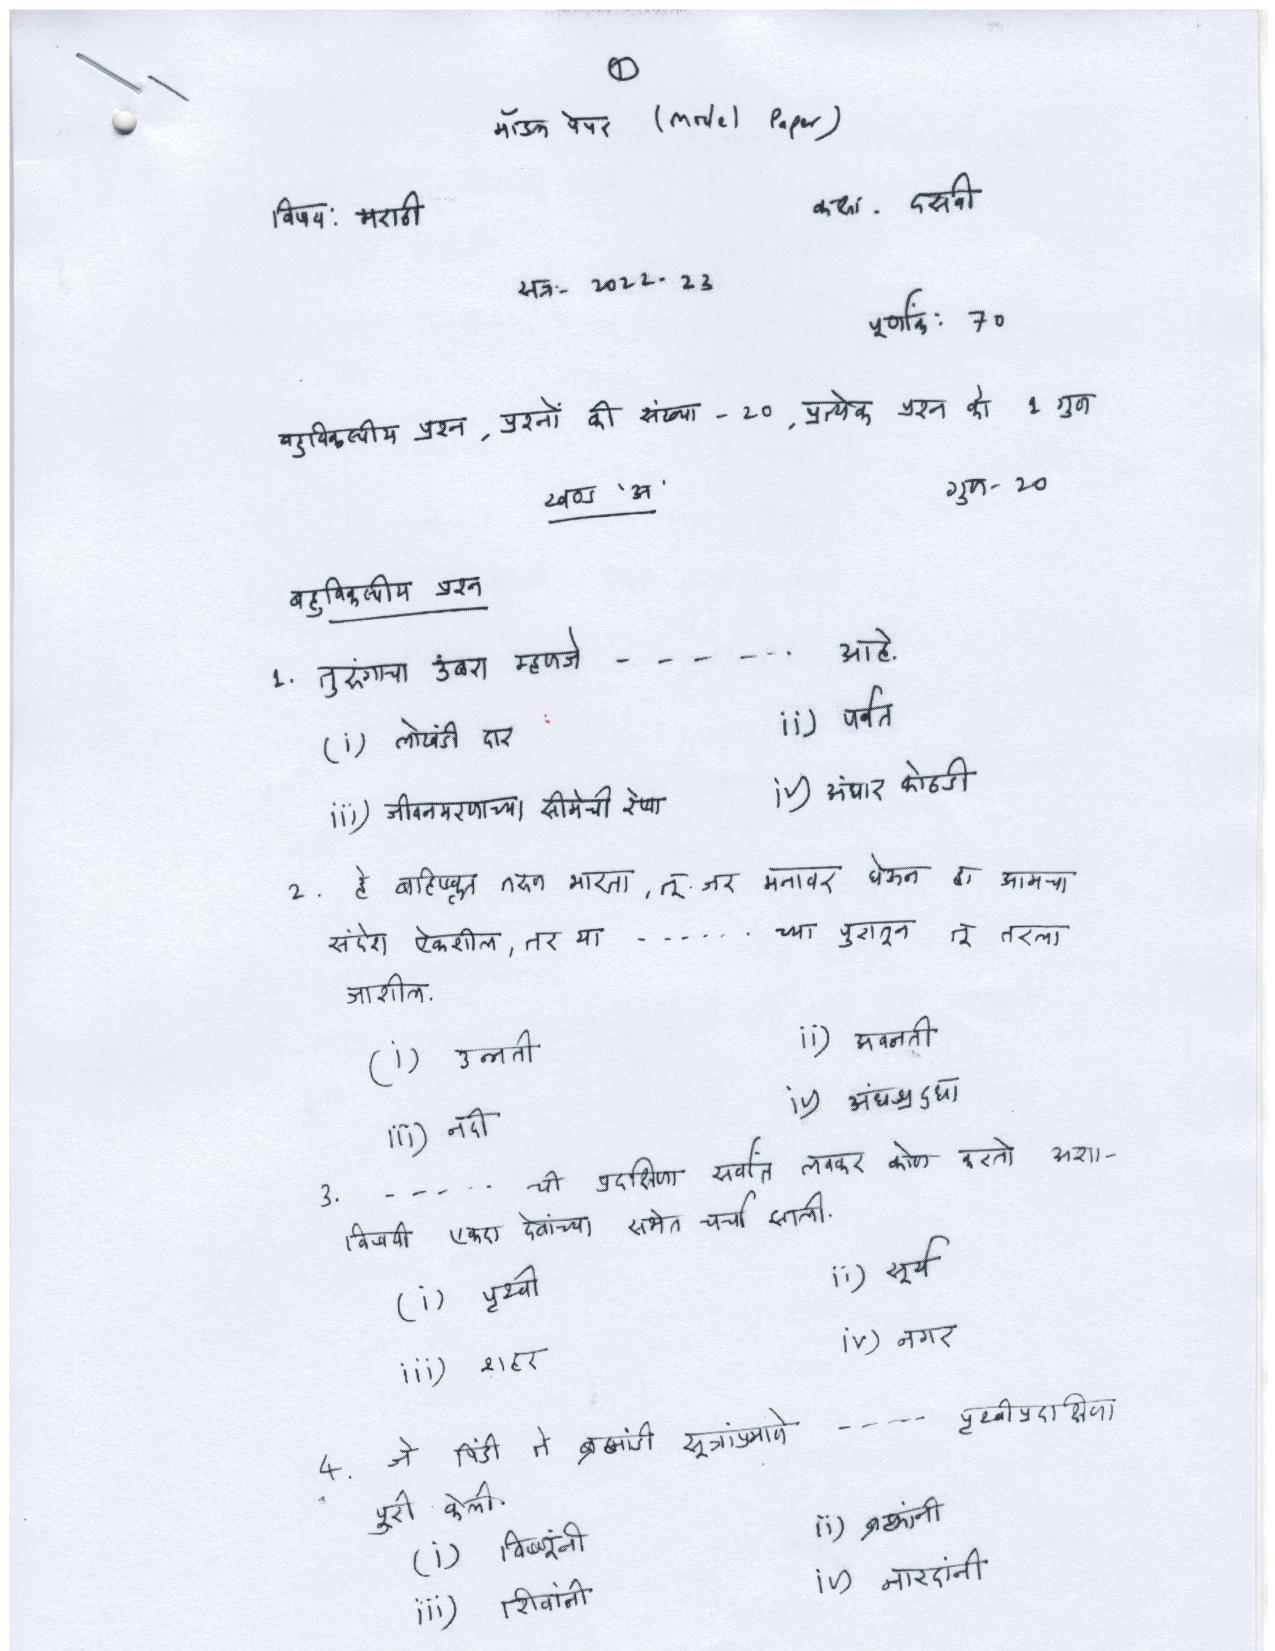 ①
मॉडल पेपर (Model Paper)
विषय: मराठी कक्षा. दसवी
सत्र:- 2022-23
पूर्णांक: 70
बहुविकल्पीय प्रश्न, प्रश्नों की संख्या - 20, प्रत्येक प्रश्न को 1 गुण
खण्ड 'अ' गुण- 20
बहुविकल्पीय प्रश्न
1. तुरुंगाचा उंबरा म्हणजे - - - - - - - आहे.
(i) लोखंडी दार ii) पर्वत
iii) जीवनमरणाच्या सीमेची रेषा iv) अंधार कोठडी
2. हे बहिष्कृत तरुण भारता, तू जर मनावर घेऊन हा आमचा
संदेश ऐकशील, तर या - - - - - - - च्या पुरातून तू तरला
जाशील.
(i) उन्नती ii) अवनती
iii) नदी iv) अंधश्रद्धा
3. - - - - - - ची प्रदक्षिणा सर्वांत लवकर कोण करतो अशा-
विषयी एकदा देवांच्या सभेत चर्चा झाली.
(i) पृथ्वी ii) सूर्य
iii) शहर iv) नगर
4. जे पिंडी ते ब्रह्मांडी सूत्रांप्रमाणे - - - - - पृथ्वीप्रदक्षिणा
पुरी केली.
(i) विष्णूंनी ii) ब्रह्मांनी
iii) शिवांनी iv) नारदांनी